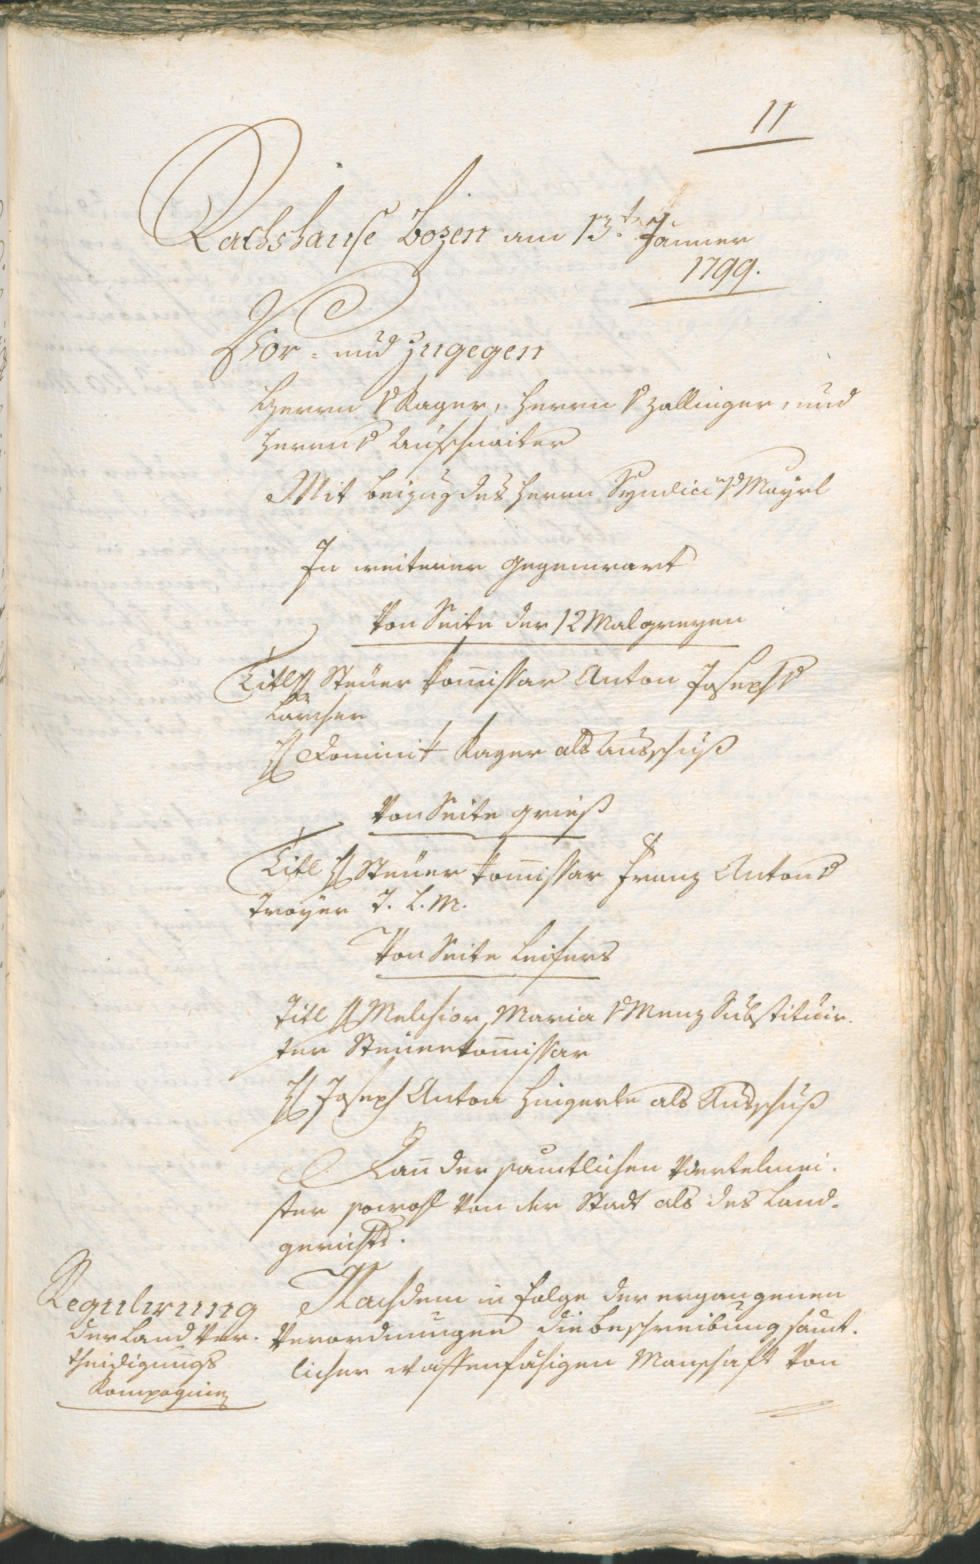 11
Rathshause Bozen am 13.t Jänner
1799.
Vor- und zugegen
Herrn v Kager, Herrn v Zallinger, und
Herrn v Aufschnaiter
Mit beizug des Herrn Syndici v Mayrl
In weiterer gegenwart
Von Seite der 12 Malgreyen
Titl H Steuer kom̅issar Anton Joseph v
Larcher
H Dominik Kager als Ausschuß
Von Seite gries
Titl H Steuer kom̅issar Franz Anton v
Troyer T. L. M.
Von Seite Leifers
Titl H Melchior Maria v Menz Substituir-
ter Steuerkom̅issar
H Joseph Anton Hingerle als Ausschuß
Dan̅ der samtlichen Viertelmei-
ster sowohl von der Stadt als des Land-
gerichts.
Regulirung
der Land Ver-
theidigungs
Kompagnien
Nachdem in folge der ergangenen
Verordnungen die beschreibung sämt-
licher waffenfähigen Manschaft von